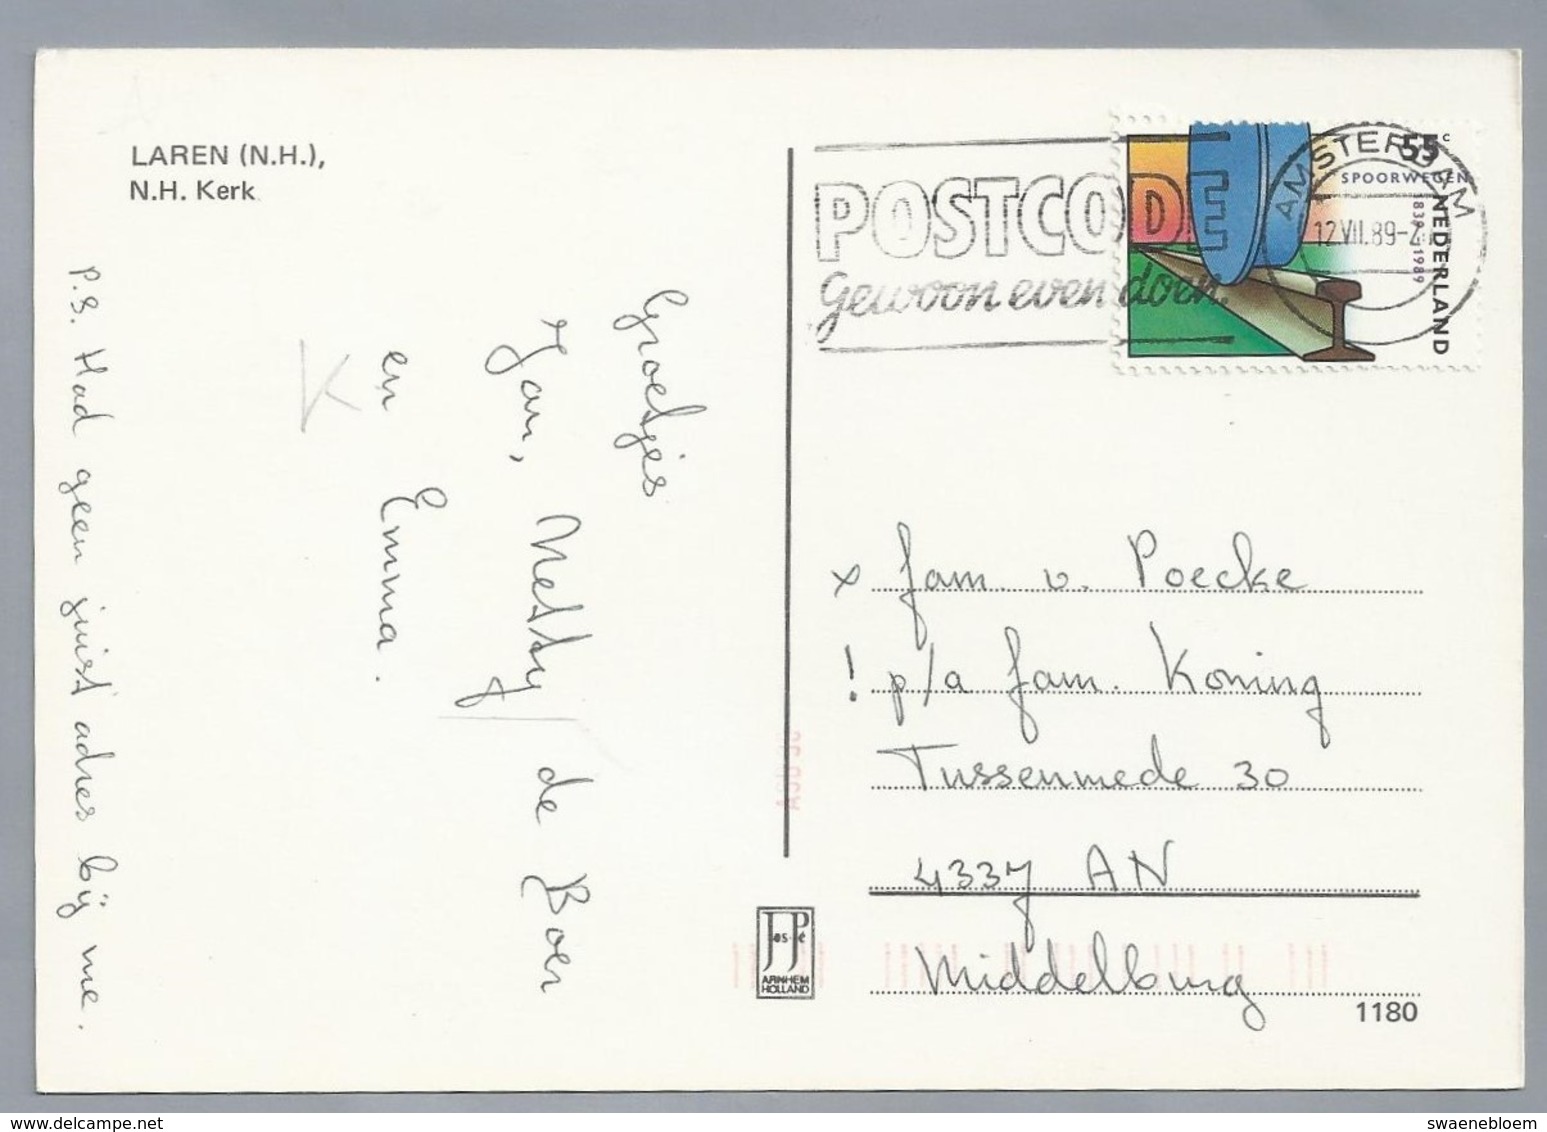 LAREN (N.H.),
N.H. Kerk
Groetjes
Jan, Netty de Boer
en Emma.
K
P.S. Had geen juist adres bij me.
POSTCODE
Gewoon even doen.
AMSTERDAM
12.VII.89-2
55 c
SPOORWEGEN
1839-1989
NEDERLAND
x fam. v. Poecke
! p/a fam. Koning
Tussenmede 30
4337 AN
Middelburg
JosPé
ARNHEM
HOLLAND
1180
delcampe.net
swaenebloem